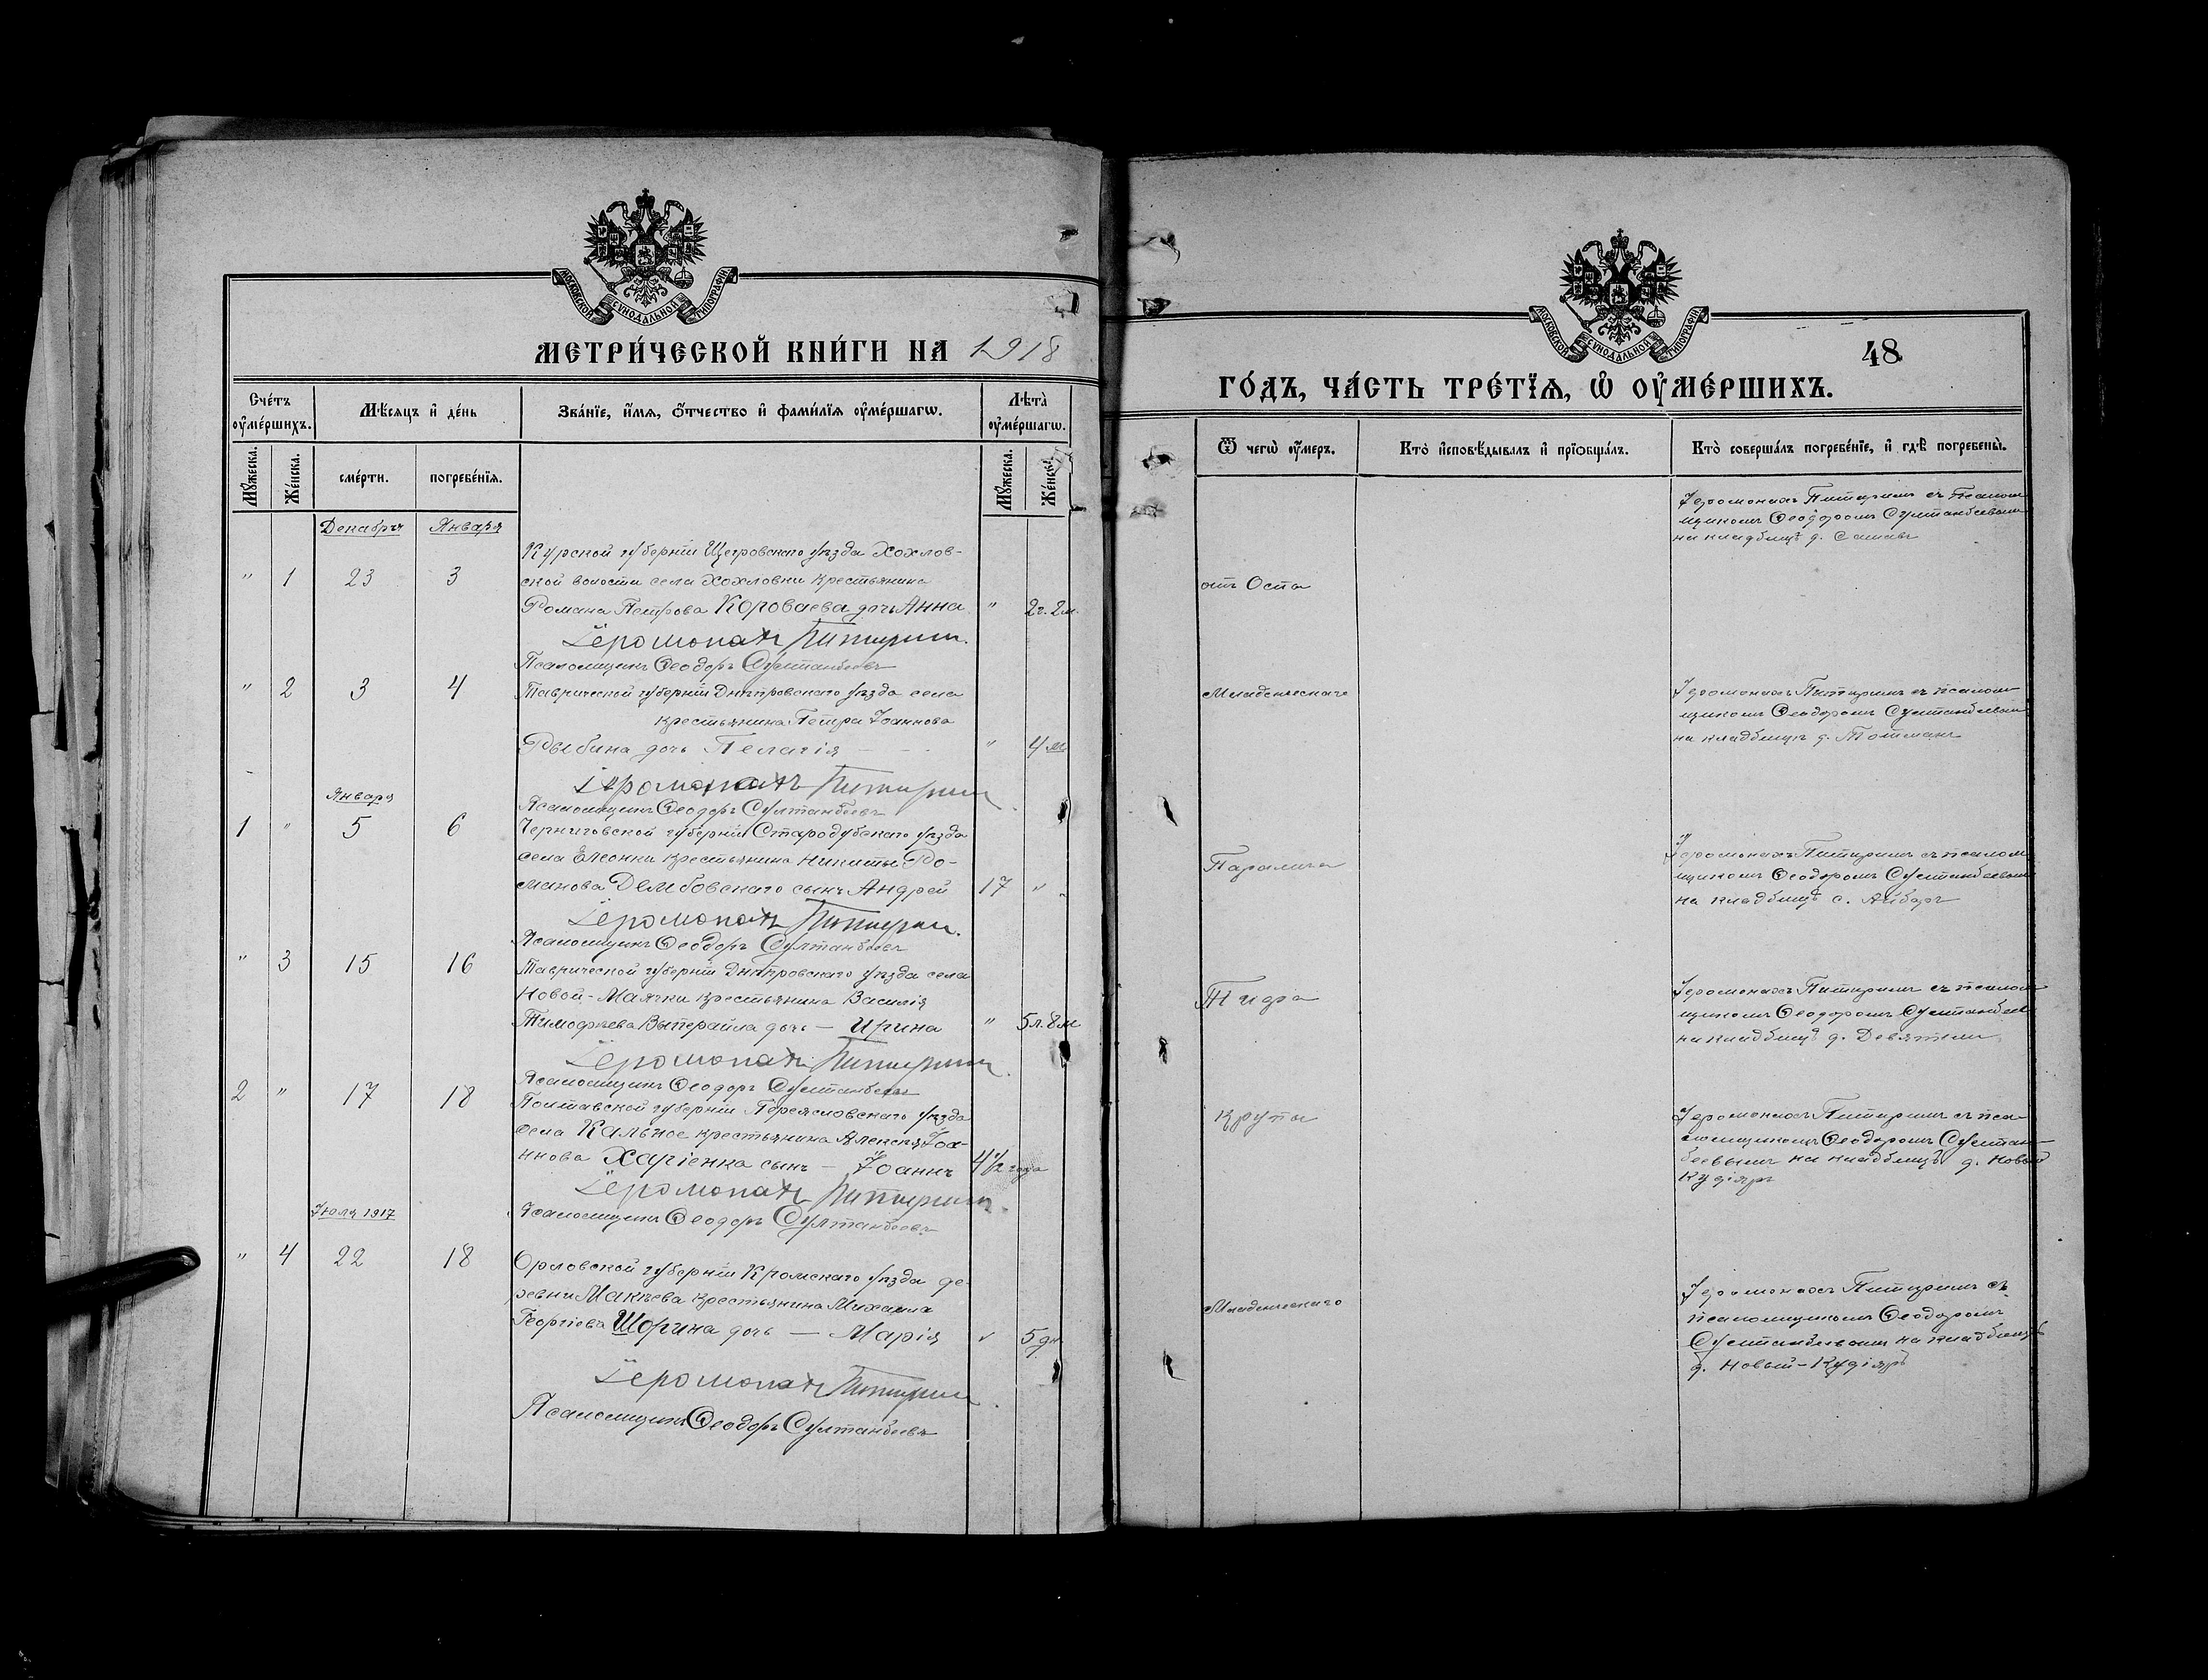 МОСКОВСКОЙ СУНОДАЛЬНОЙ ТИПОГРАФІИ
МЕТРИ́ЧЕСКОЙ КНИ́ГИ НА 1918
Сче́тъ оу҆ме́ршихъ.
Мѣ́сяцъ и҆ де́нь
Зва́нїе, и҆́мя, ѻ҆́тчество и҆ фами́лїя оу҆ме́ршагѡ.
Лѣ́та оу҆ме́ршагѡ.
Мꙋ́жеска.
Же́нска.
сме́рти.
погребе́нїя.
Мꙋ́жеска.
Же́нска.
Декабря Января
Курской губерніи Щегровскаго уѣзда Хохлов-
" 1 23 3 ской волости села Хохловки крестьянина
Романа Петрова Короваева дочь Анна " 2г. 2м.
Іеромонахъ Питиримъ.
Псаломщикъ Ѳеодоръ Султанбеевъ
" 2 3 4 Таврической губерніи Днѣпровскаго уѣзда села
крестьянина Петра Іоаннова
Рыбина дочь Пелагія — " 4 м.
Іеромонахъ Питиримъ
Января
Псаломщикъ Ѳеодоръ Султанбеевъ
1 " 5 6 Черниговской губерніи Стародубскаго уѣзда
села Елеонки крестьянина Никиты Ро-
манова Дембовскаго сынъ Андрей 17 "
Іеромонахъ Питиримъ.
Псаломщикъ Ѳеодоръ Султанбеевъ
" 3 15 16 Таврической губерніи Днѣпровскаго уѣзда села
Новой-Маячки крестьянина Василія
Тимофѣева дочь — Ирина " 5л. 8м
Іеромонахъ Питиримъ.
Псаломщикъ Ѳеодоръ Султанбеевъ
2 " 17 18 Полтавской губерніи Переясловскаго уѣзда
села Кальное крестьянина Алексѣя Іоа-
ннова Харіенка сынъ — Іоаннъ 4 1/2 года
Іеромонахъ Питиримъ.
Іюля 1917 Псаломщикъ Ѳеодоръ Султанбеевъ
" 4 22 18 Орловской губерніи Кромскаго уѣзда де-
ревни Макѣева крестьянина Михаила
Георгіева Шорина дочь — Марія " 5 дн
Іеромонахъ Питиримъ
Псаломщикъ Ѳеодоръ Султанбеевъ
МОСКОВСКОЙ СУНОДАЛЬНОЙ ТИПОГРАФІИ
48
ГО́ДЪ, ЧА́СТЬ ТРЕ́ТЇЯ, Ѡ҆ ОУ҆МЕ́РШИХЪ.
Ѿ чегѡ̀ оу҆́меръ.
Кто̀ и҆сповѣ́дывалъ и҆ прїѻбща́лъ.
Кто̀ соверша́лъ погребе́нїе, и҆ гдѣ̀ погребены̀.
Іеромонахъ Питиримъ съ псалом
щикомъ Ѳеодоромъ Султанбеевымъ
на кладбищѣ д.
отъ Оспы
Младенческаго
Іеромонахъ Питиримъ съ псалом
щикомъ Ѳеодоромъ Султанбеевым
на кладбищѣ д. Тотманъ
Паралича
Іеромонахъ Питиримъ съ псалом
щикомъ Ѳеодоромъ Султанбеевым
на кладбищѣ с. Айбаръ
Тифа
Іеромонахъ Питиримъ съ псалом
щикомъ Ѳеодоромъ Султанбеев
на кладбищѣ д.
Крупы
Іеромонахъ Питиримъ съ пса-
ломщикомъ Ѳеодоромъ Султан-
беевымъ на кладбищѣ д. Новый
Кудіяръ
Младенческаго
Іеромонахъ Питиримъ съ
псаломщикомъ Ѳеодоромъ
Султанбеевымъ на кладбищѣ
д. Новый-Кудіяръ